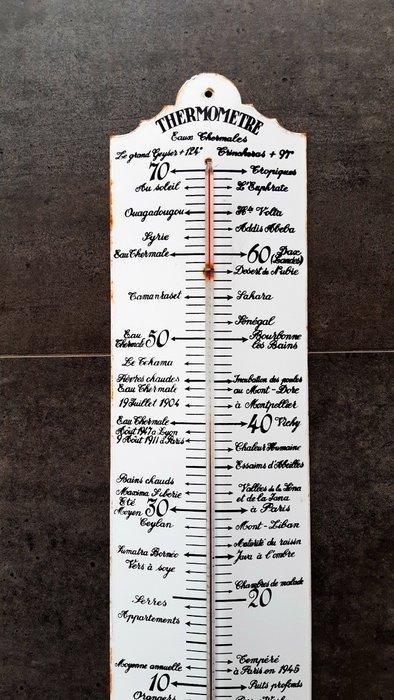 THERMOMETRE
Eaux Thermales
Le grand Geyser + 124° Trincheras + 97°
70 Tropiques
Au soleil L'Euphrate
Ouagadougou Hte Volta
Syrie Addis Abeba
Eau Thermale 60 Dax (Landes)
Desert de Nubie
Tamanraset Sahara
Sénégal
Eau Thermale 50 Bourbonne les Bains
Le Tehama
Fièvres chaudes Incubation des poules
Eau Thermale au Mont-Dore
19 Juillet 1904 à Montpellier
Eau Thermale 40 Vichy
Août 1947 à Lyon
9 Août 1911 à Paris
Chaleur Humaine
Essaims d'Abeilles
Bains chauds
Maxima Siberie Vallées de la Léna
Eté et de la Jana
Moyen 30 à Paris
Ceylan Mont-Liban
Maturité du raisin
Sumatra Bornéo Java à l'ombre
Vers à soye
Chambres de malade
Serres 20
Appartements
Moyenne annuelle Tempéré
à Paris en 1945
10 Puits profonds
Orangers